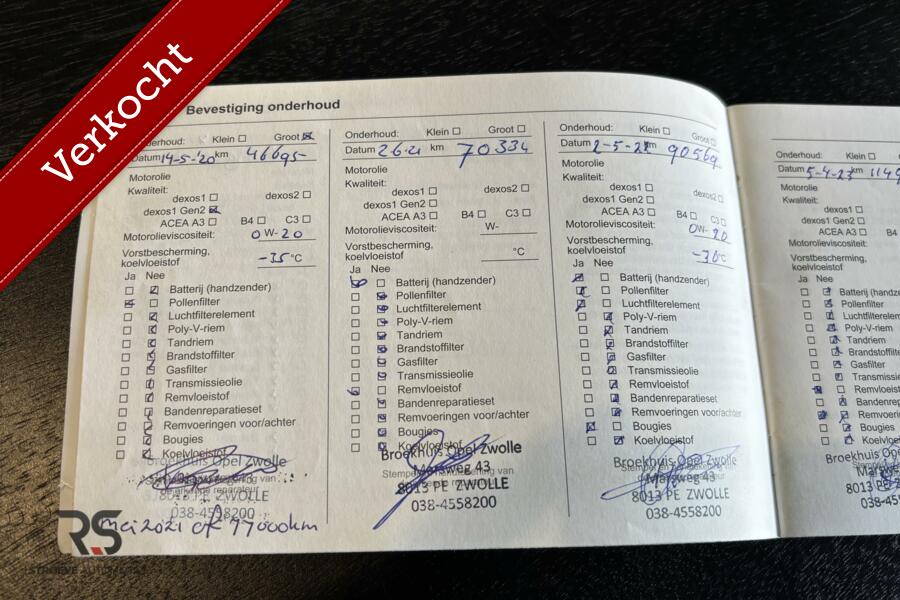 Verkocht
Bevestiging onderhoud
Onderhoud: Klein Groot
Datum 14-5-'20 km 46695-
Motorolie
Kwaliteit:
dexos1 dexos2
dexos1 Gen2
ACEA A3 B4 C3
Motorolieviscositeit: 0 W- 20
Vorstbescherming,
koelvloeistof -35 °C
Ja Nee
Batterij (handzender)
Pollenfilter
Luchtfilterelement
Poly-V-riem
Tandriem
Brandstoffilter
Gasfilter
Transmissieolie
Remvloeistof
Bandenreparatieset
Remvoeringen voor/achter
Bougies
Koelvloeistof
Broekhuis Opel Zwolle
8013 PE ZWOLLE
038-4558200
Mei 2021 of 77000km
Onderhoud: Klein Groot
Datum 2-6-21 km 70334
Motorolie
Kwaliteit:
dexos1 dexos2
dexos1 Gen2
ACEA A3 B4 C3
Motorolieviscositeit: W-
Vorstbescherming,
koelvloeistof °C
Ja Nee
Batterij (handzender)
Pollenfilter
Luchtfilterelement
Poly-V-riem
Tandriem
Brandstoffilter
Gasfilter
Transmissieolie
Remvloeistof
Bandenreparatieset
Remvoeringen voor/achter
Bougies
Koelvloeistof
Broekhuis Opel Zwolle
Marsweg 43
8013 PE ZWOLLE
038-4558200
Onderhoud: Klein Groot
Datum 2-5-22 km 90569
Motorolie
Kwaliteit:
dexos1 dexos2
dexos1 Gen2
ACEA A3 B4 C3
Motorolieviscositeit: 0W- 20
Vorstbescherming,
koelvloeistof -30°C
Ja Nee
Batterij (handzender)
Pollenfilter
Luchtfilterelement
Poly-V-riem
Tandriem
Brandstoffilter
Gasfilter
Transmissieolie
Remvloeistof
Bandenreparatieset
Remvoeringen voor/achter
Bougies
Koelvloeistof
Broekhuis Opel Zwolle
Marsweg 43
8013 PE ZWOLLE
038-4558200
Onderhoud: Klein
Datum 5-4-23 km 1149
Motorolie
Kwaliteit:
dexos1
dexos1 Gen2
ACEA A3 B4
Motorolieviscositeit:
Vorstbescherming,
koelvloeistof
Ja Nee
Batterij (handzen
Pollenfilter
Luchtfilterelemen
Poly-V-riem
Tandriem
Brandstoffilte
Gasfilter
Transmissie
Remvloeist
Bandenrep
Remvoerin
Bougies
Koelvloei
Broekhuis O
8013 PE
038-45
RS
STROEVE AUTOMOTIVE